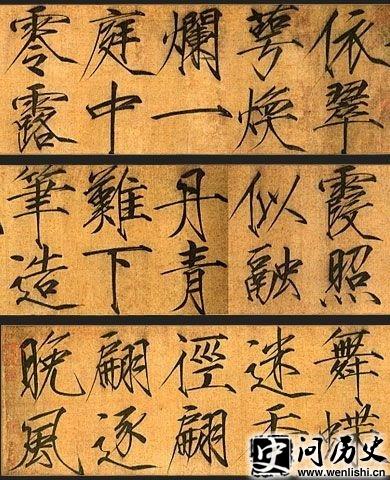 依翠
萼煥
爛一
庭中
零露
霞照
似融
丹青
難下
筆造
舞蝶
迷香
徑翩
翩逐
晚風
问历史
www.wenlishi.cn